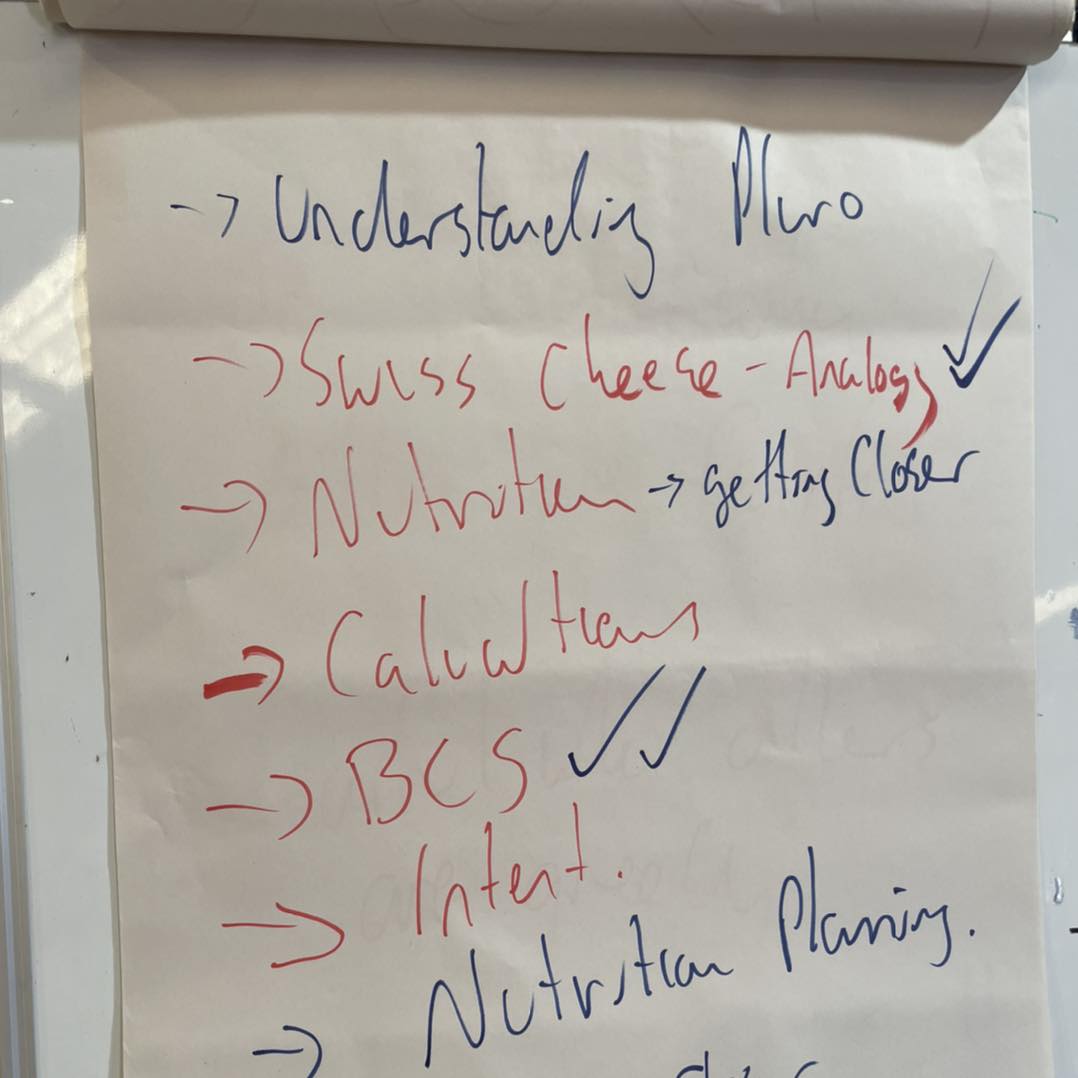 → Understanding Pluro
→ Swiss Cheese - Analogy ✓✓
→ Nutrition → getting Closer
→ Calculations
→ BCS ✓✓
→ Intent.
→ Nutrition Planning.